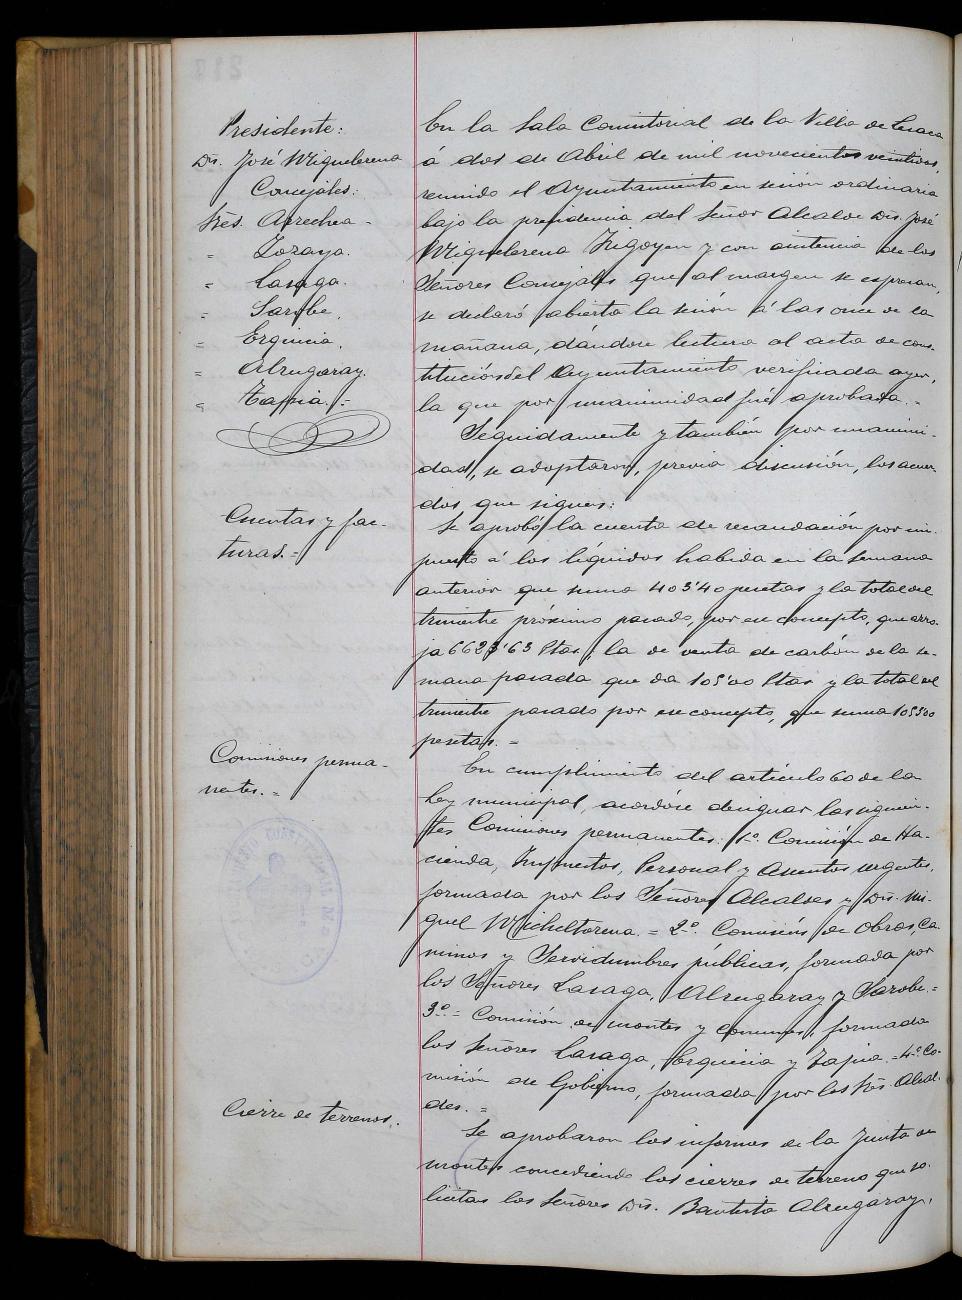 Presidente:
Dn. José Miquelarena
Concejales:
Srēs. Arrechea -
" Zozaya.
" Lasaga.
" Sarobe.
= Erquicia.
" Alzugaray.
" Tapia.=
Cuentas y fac-
turas.=
Comisiones perma-
nentes.=
Cierre de terrenos.
En la Sala Consistorial de la Villa de Lesaca
á dos de Abril de mil novecientos veintidos,
reunido el Ayuntamiento en sesión ordinaria
bajo la presidencia del Señor Alcalde Dn. José
Miquelarena Irigoyen y con asistencia de los
Señores Concejales que al margen se expresan,
se declaró abierta la sesión á las once de la
mañana, dándose lectura al acta de cons-
titución del Ayuntamiento verificada ayer,
la que por unanimidad fué aprobada.-
Seguidamente y también por unanimi-
dad, se adoptaron, previa discusión, los acuer-
dos que siguen:
Se aprobó la cuenta de recaudación por im-
puesto á los líquidos habida en la semana
anterior que suma 403'40 pesetas y la total del
trimestre próximo pasado, por ese concepto, que arro-
ja Ptas, la de venta de carbón de la se-
mana pasada que da 105'00 Ptas y la total del
trimestre pasado por ese concepto, que suma
pesetas.=
En cumplimiento del artículo 60 de la
Ley municipal, acordóse designar las siguien-
tes Comisiones permanentes: 1ª Comisión de Ha-
cienda, Impuestos, Personal y Asuntos urgentes,
formada por los Señores Alcaldes y Dn. Mi-
guel Micheltorena.= 2ª Comisión de Obras, Ca-
minos y Servidumbres públicas, formada por
los Señores Lasaga, Alzugaray y Sarobe.=
3ª= Comisión de montes y comunes, formada
los señores Lasaga, Erquicia y Tapia.= 4ª Co-
misión de Gobierno, formada por los Srēs. Alcal-
des.=
Se aprobaron los informes de la Junta de
montes concediendo los cierres de terreno que so-
licitan los Señores Dn. Bautista Alzugaray,